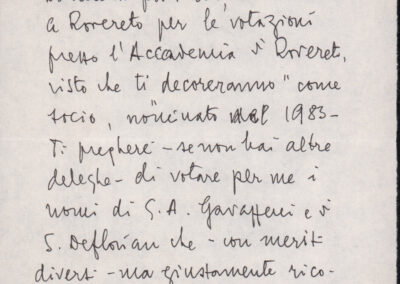 a Rovereto per le votazioni
presso l'Accademia di Roveret,
visto che ti decoreranno "come
socio, nominato nel 1983-
Ti pregherei - se non hai altre
deleghe - di votare per me i
nomi di G. A. Gavaffeni e di
S. Deflorian che - con merit
diversi - ma giustamente rico-